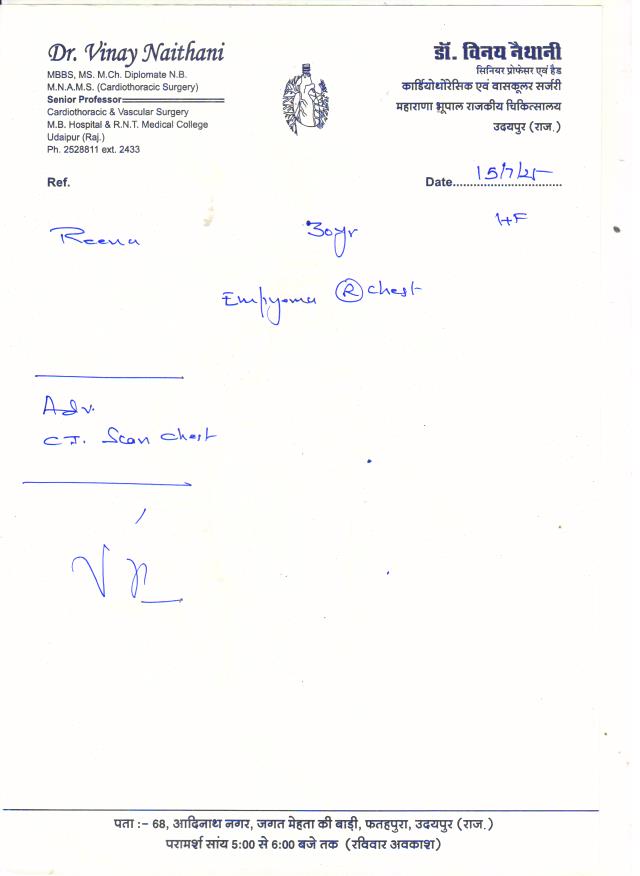 Dr. Vinay Naithani
MBBS, MS. M.Ch. Diplomate N.B.
M.N.A.M.S. (Cardiothoracic Surgery)
Senior Professor
Cardiothoracic & Vascular Surgery
M.B. Hospital & R.N.T. Medical College
Udaipur (Raj.)
Ph. 2528811 ext. 2433
डॉ. विनय नैथानी
सिनियर प्रोफेसर एवं हैड
कार्डियोथोरेसिक एवं वासकूलर सर्जरी
महाराणा भूपाल राजकीय चिकित्सालय
उदयपुर (राज.)
Ref.
Date.............................. 15/7/25
Reena 30yr
Empyema R chest
Adv.
C.T. Scan Chest
पता :– 68, आदिनाथ नगर, जगत मेहता की बाड़ी, फतहपुरा, उदयपुर (राज.)
परामर्श सांय 5:00 से 6:00 बजे तक (रविवार अवकाश)